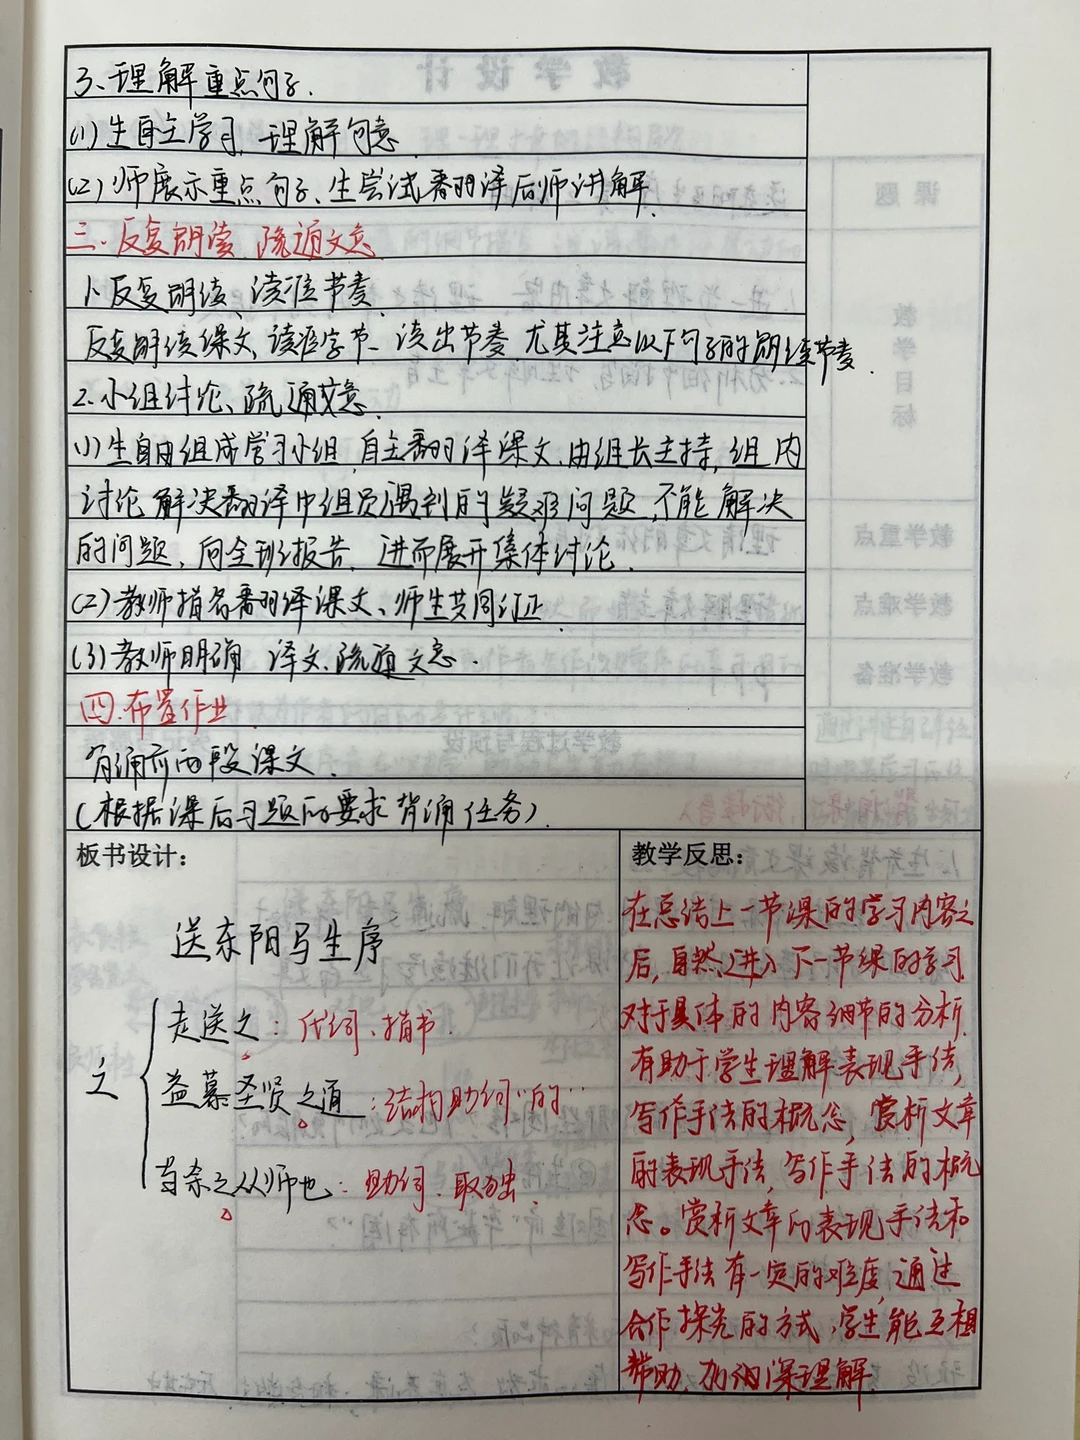 3、理解重点句子.
(1)生自主学习,理解句意.
(2)师展示重点句子、生尝试翻译后师讲解.
三.反复朗读,疏通文意
1、反复朗读、读准节奏.
反复朗读课文、读准字节、读出节奏,尤其注意以下句子的朗读节奏.
2.小组讨论、疏通文意.
(1)生自由组成学习小组,自主翻译课文.由组长主持,组内
讨论,解决翻译中组员遇到的疑难问题,不能解决
的问题,向全班报告,进而展开集体讨论.
(2)教师指名翻译课文、师生共同订正.
(3)教师明确 译文.疏通文意.
四.布置作业
背诵前两段课文.
(根据课后习题的要求背诵任务).
板书设计:
送东阳马生序
之
走送之:代词、指书.
益慕圣贤之道:结构助词"的"
当余之从师也:助词.取独.
教学反思:
在总结上一节课的学习内容之
后,自然进入下一节课的学习
对于具体的内容细节的分析.
有助于学生理解表现手法,
写作手法的概念,赏析文章
的表现手法,写作手法的概
念。赏析文章的表现手法和
写作手法有一定的难度,通过
合作探究的方式,学生能互相
帮助,加深理解.